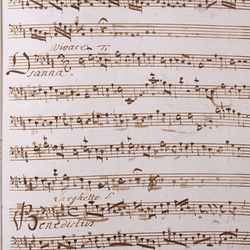 Vivace
Osanna.
Larghetto
Benedictus